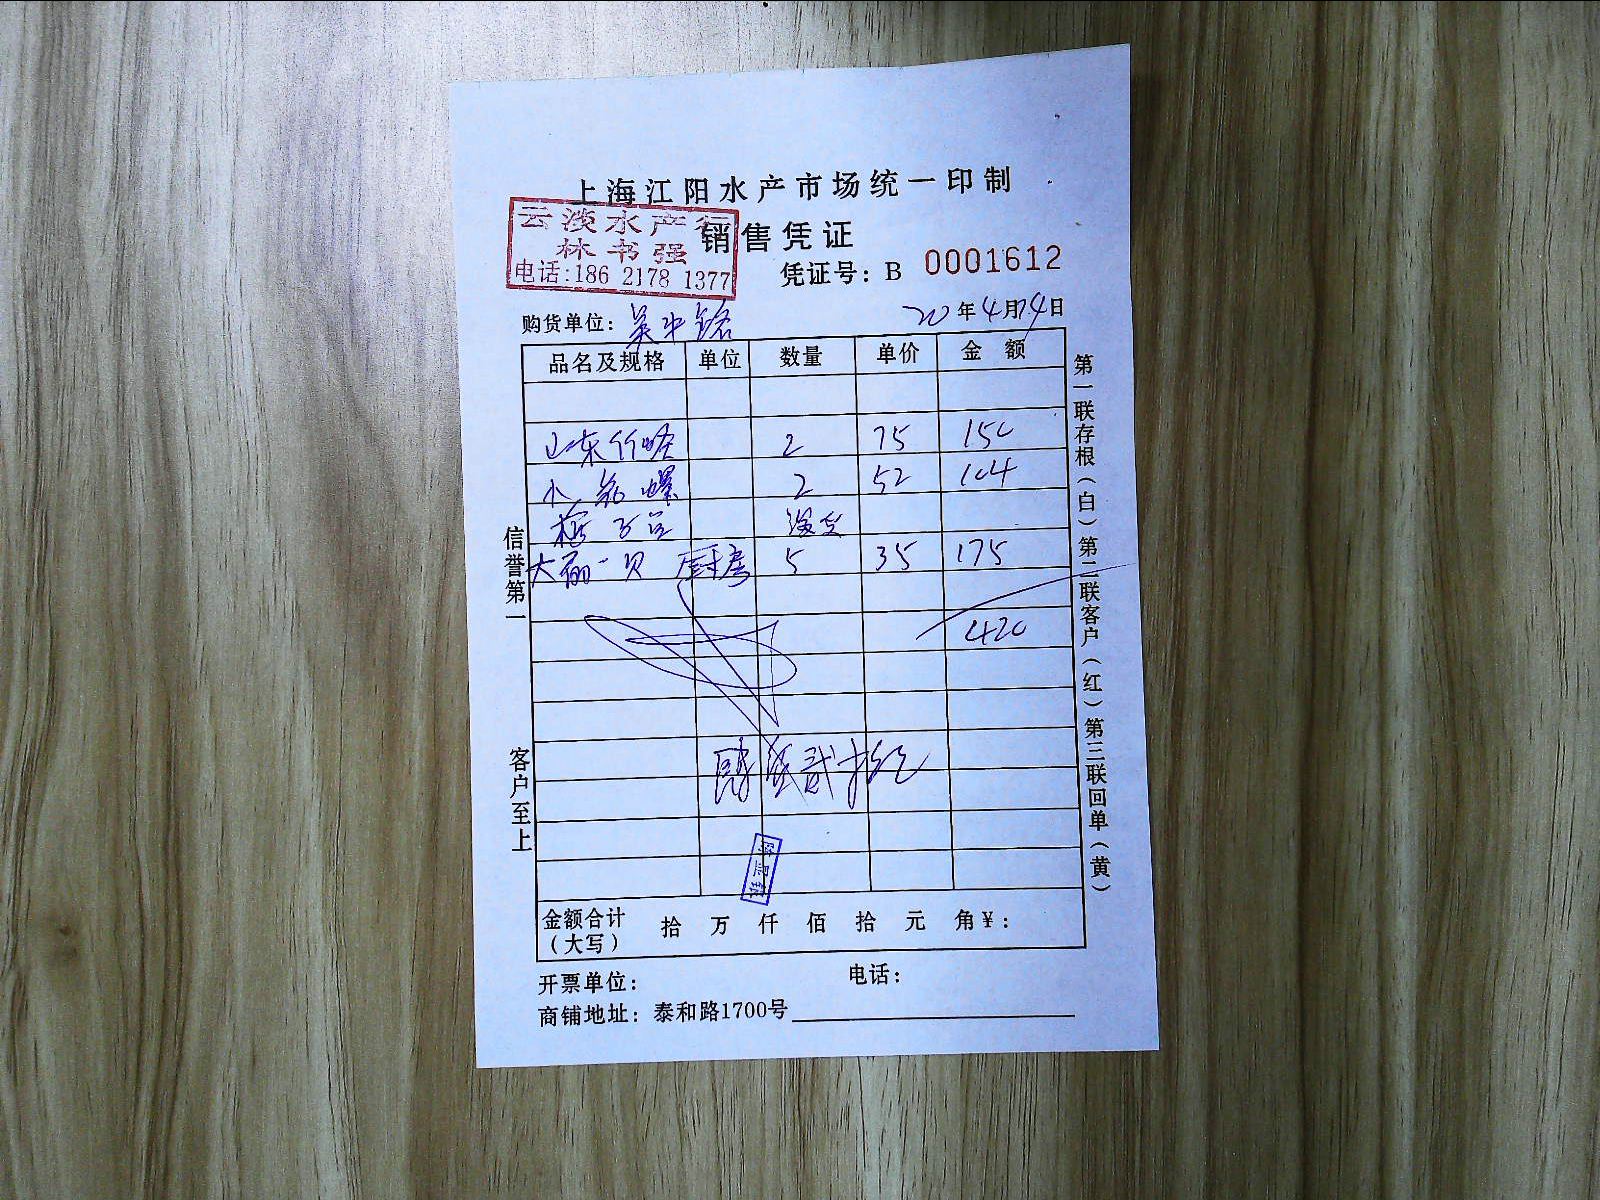 上海江阳水产市场统一印制
云淡水产行
林书强
电话:186 2178 1377
销售凭证
凭证号：B 0001612
购货单位：
20年4月14日
品名及规格 单位 数量 单价 金额
山东竹蛏 2 75 150
小 螺 2 52 104
没货
大 贝 厨房 5 35 175
420
肆佰贰拾元
金额合计（大写） 拾 万 仟 佰 拾 元 角 ¥：
开票单位： 电话：
商铺地址：泰和路1700号
信誉第一
客户至上
第一联存根（白）第二联客户（红）第三联回单（黄）